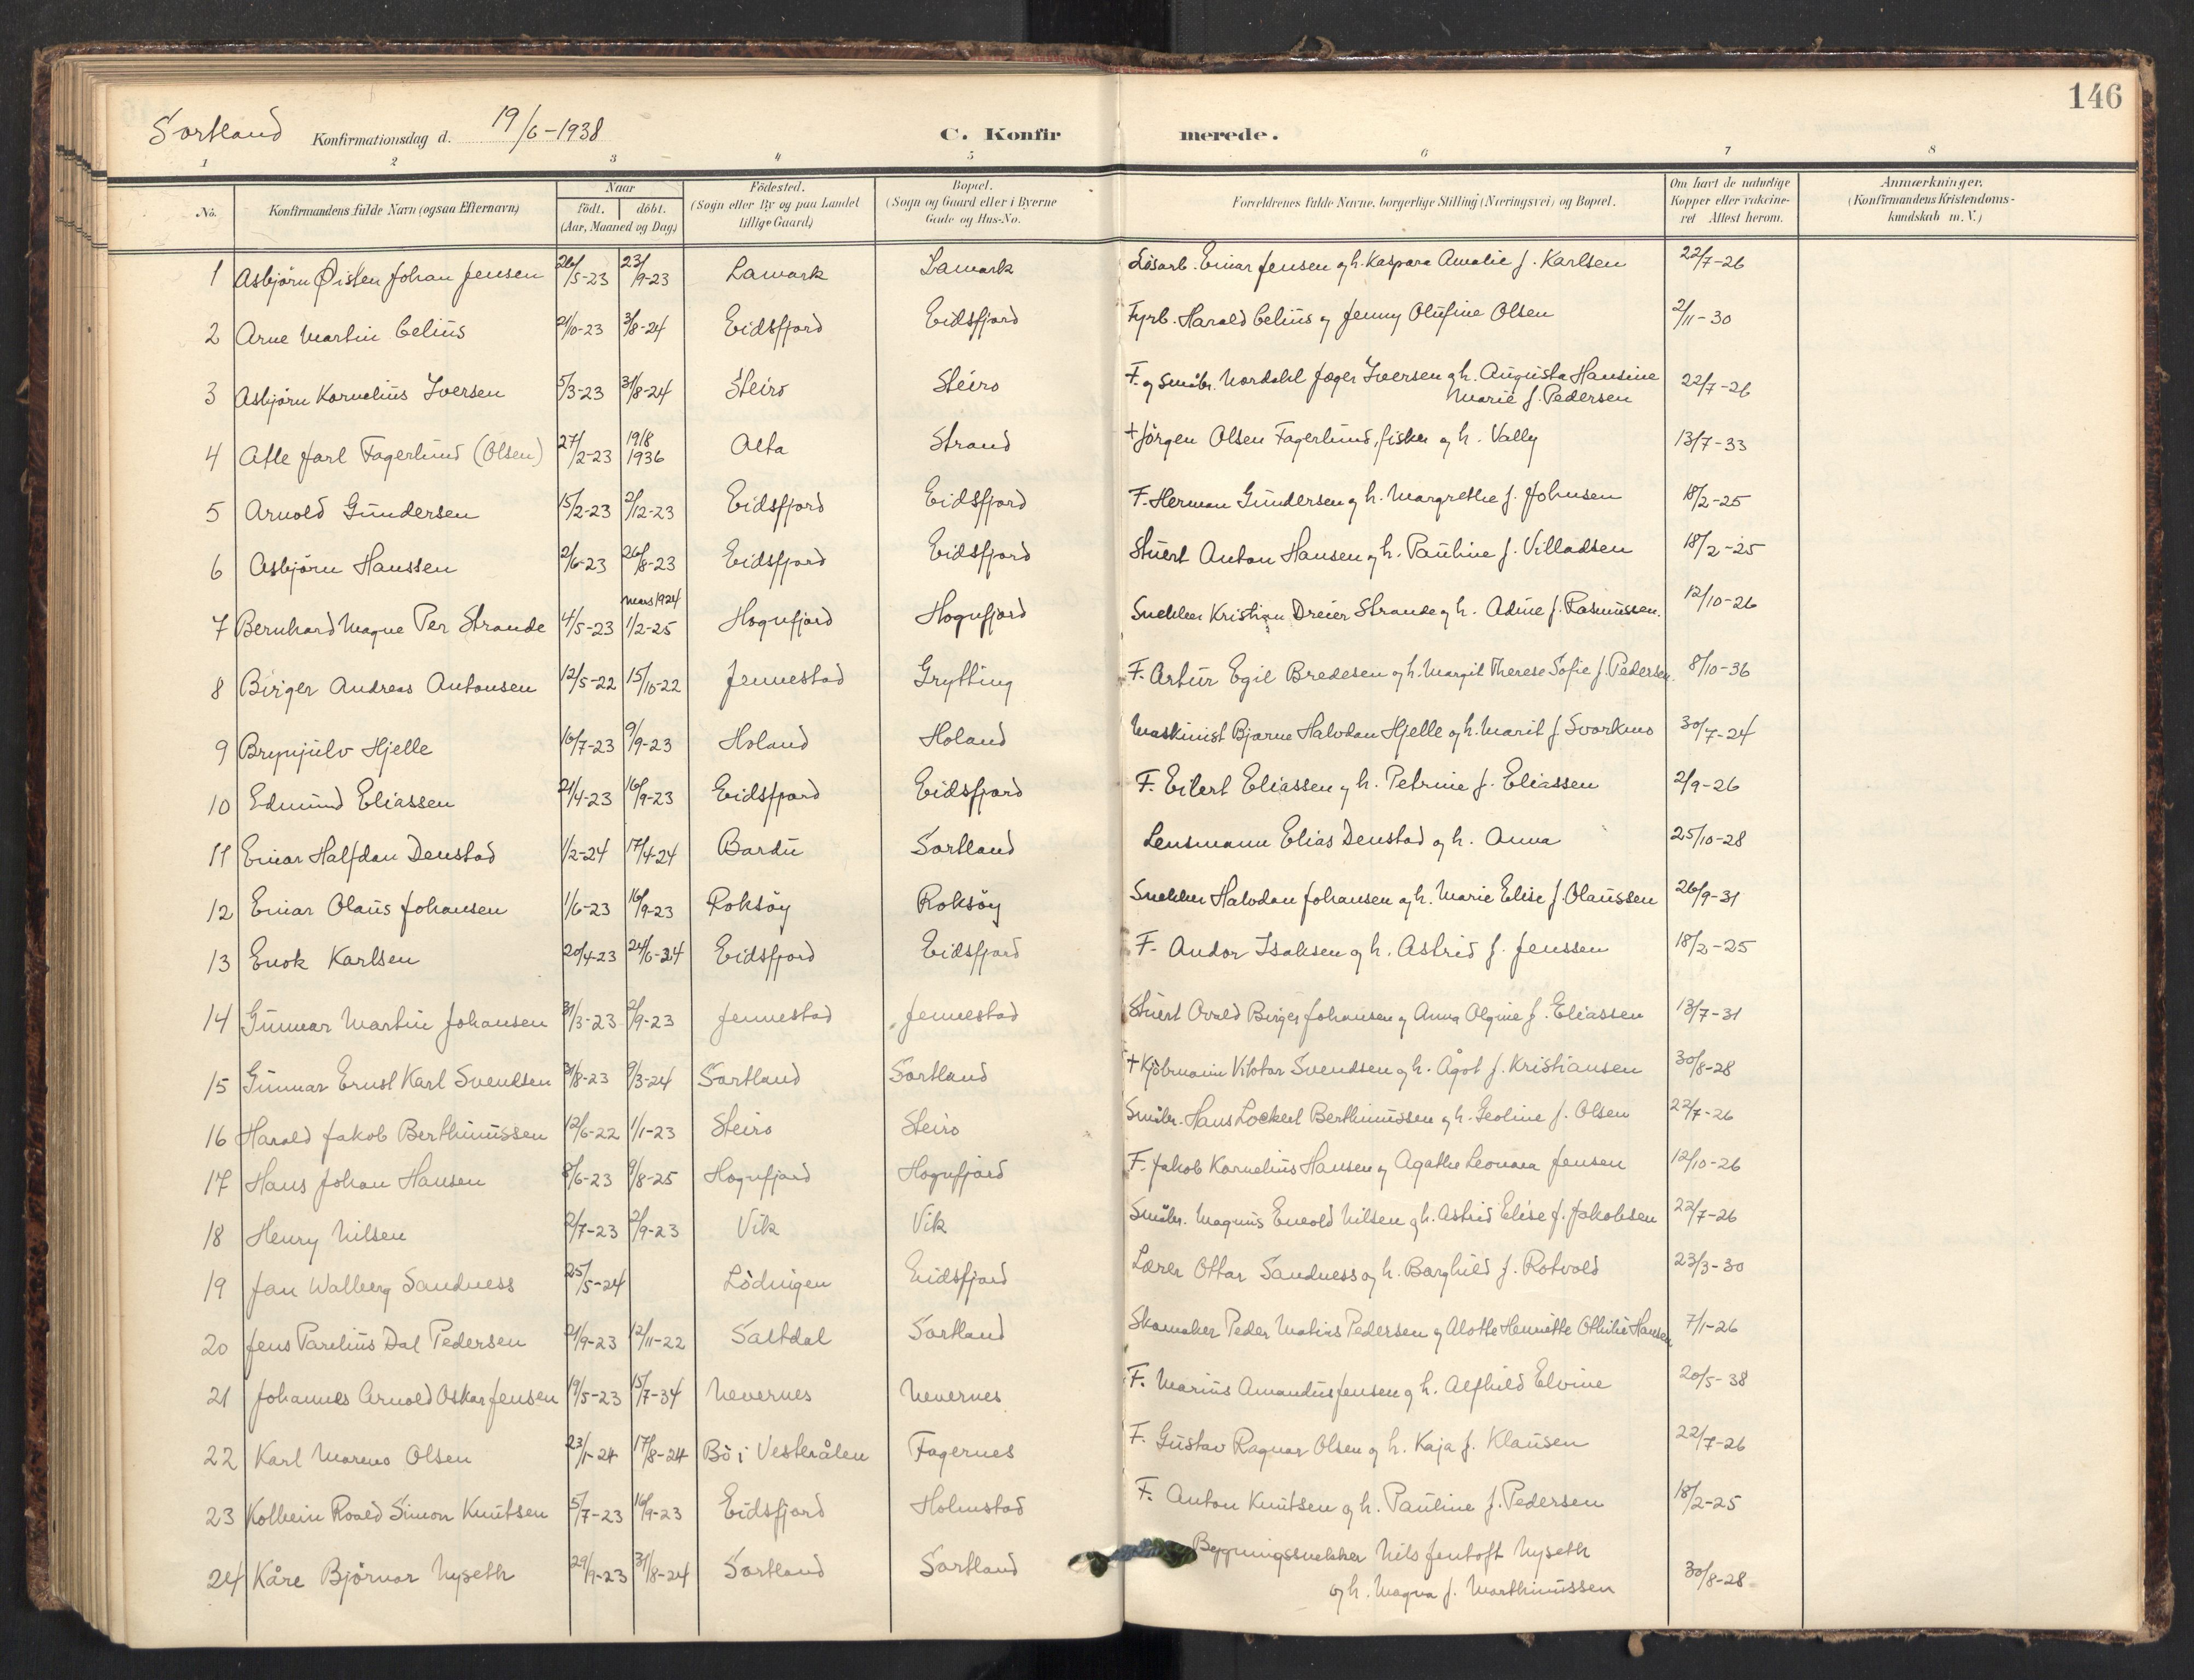 146
Sortland Konfirmationsdag d. 19/6-1938 C. Konfirmerede.
1 2 3 4 5 6 7 8
No. Konfirmandens fulde Navn (ogsaa Efternavn) Naar födt. döbt. (Aar, Maaned og Dag) Födested. (Sogn eller By og paa Landet tillige Gaard) Bopæl. (Sogn og Gaard eller i Byerne Gade og Hus-No. Forældrenes fulde Navne, borgerlige Stilling (Næringsvei) og Bopæl. Om havt de naturlige Kopper eller vakcineret Attest herom. Anmærkninger. (Konfirmandens Kristendomskundskab m. V.)
1 Asbjörn Öisten Johan Jensen 26/5-23 23/9-23 Lamark Lamark Lösarb. Einar Jensen og h. Kaspara Amalie f. Karlsen 22/7-26
2 Arne Martin Celius 21/10-23 3/8-24 Eidsfjord Eidsfjord Fyrb. Harald Celius og Jenny Olufine Olsen 2/11-30
3 Asbjörn Kornelius Iversen 5/3-23 31/8-24 Steiro Steiro F. og Småbr. Nordahl Jæger Iversen og h. Augusta Hansine
Marie f. Pedersen 22/7-26
4 Atle Jarl Fagerlund (Olsen) 27/2-23 19/8 1936 Alta Strand + Jörgen Olsen Fagerlund, fisker og h. Vally 13/7-33
5 Arnold Gundersen 15/2-23 2/12-23 Eidsfjord Eidsfjord F. Herman Gundersen og h. Margrethe f. Johnsen 18/2-25
6 Asbjörn Hanssen 2/6-23 26/8-23 Eidsfjord Eidsfjord Stuert Anton Hansen og h. Pauline f. Villadsen 18/2-25
mars 1924
7 Bernhard Magne Per Strande 4/5-23 1/2-25 Hognfjord Hognfjord Snekker Kristian Dreier Strande og h. Adine f. Rasmussen. 12/10-26
8 Birger Andreas Antonsen 12/5-22 15/10-22 Jennestad Grytting F. Artur Egil Bredesen og h. Margit Therese Sofie f. Pedersen. 8/10-36
9 Brynjulv Hjelle 16/7-23 9/9-23 Holand Holand Maskinist Bjarne Halvdan Hjelle og h. Marit f. Svorkmo 30/7-24
10 Edmund Eliassen 21/4-23 16/9-23 Eidsfjord Eidsfjord F. Eilert Eliassen og h. Petrine f. Eliassen 2/9-26
11 Einar Halfdan Denstad 1/2-24 17/4-24 Bardu Sortland Lensmann Elias Denstad og h. Anna 25/10-28
12 Einar Olaus Johansen 1/6-23 16/9-23 Roksöy Roksöy Snekker Halvdan Johansen og h. Marie Elise f. Olaussen 26/9-31
13 Enok Karlsen 20/4-23 24/6-24 Eidsfjord Eidsfjord F. Andor Isaksen og h. Astrid f. Jenssen 18/2-25
14 Gunnar Martin Johansen 31/3-23 2/9-23 Jennestad Jennestad Stuert Ovald Birger Johansen og Anna Olgine f. Eliassen 13/7-31
15 Gunnar Ernst Karl Svendsen 31/8-23 9/3-24 Sortland Sortland + Kjöbmann Viktor Svendsen og h. Ågot f. Kristiansen 30/8-28
16 Harald Jakob Berthinussen 12/6-22 1/1-23 Steiro Steiro Småbr. Hans Lockert Berthinussen og h. Geoline f. Olsen 22/7-26
17 Hans Johan Hansen 8/6-23 9/8-25 Hognfjord Hognfjord F. Jakob Kornelius Hansen og Agathe Leonora Jensen 12/10-26
18 Henry Nilsen 2/7-23 2/9-23 Vik Vik Småbr. Magnus Enevold Nilsen og h. Astrid Elise f. Jakobsen 22/7-26
19 Jan Walberg Sandness 25/5-24 Lödingen Eidsfjord Lærer Ottar Sandness og h. Borghild f. Rotvold 23/3-30
20 Jens Parelius Dal Pedersen 21/9-23 12/11-22 Saltdal Sortland Skomaker Peder Matias Pedersen og Henriette Othilie Hansen 7/1-26
21 Johannes Arnold Oskar Jensen 19/5-23 15/7-34 Nevernes Nevernes F. Marius Amandus Jensen og h. Alfhild Elvine 20/5-38
22 Karl Marenus Olsen 23/1-24 17/8-24 Bö i Vesterålen Fagernes F. Gustav Ragnar Olsen og h. Kaja f. Klausen 22/7-26
23 Kolbein Roald Simon Knutsen 5/7-23 16/9-23 Eidsfjord Holmstad F. Anton Knutsen og h. Pauline f. Pedersen 18/2-25
24 Kåre Björnar Nyseth 29/9-23 31/8-24 Sortland Sortland Bygningssnekker Nils Jentoft Nyseth
og h. Magna f. Marthinussen 30/8-28